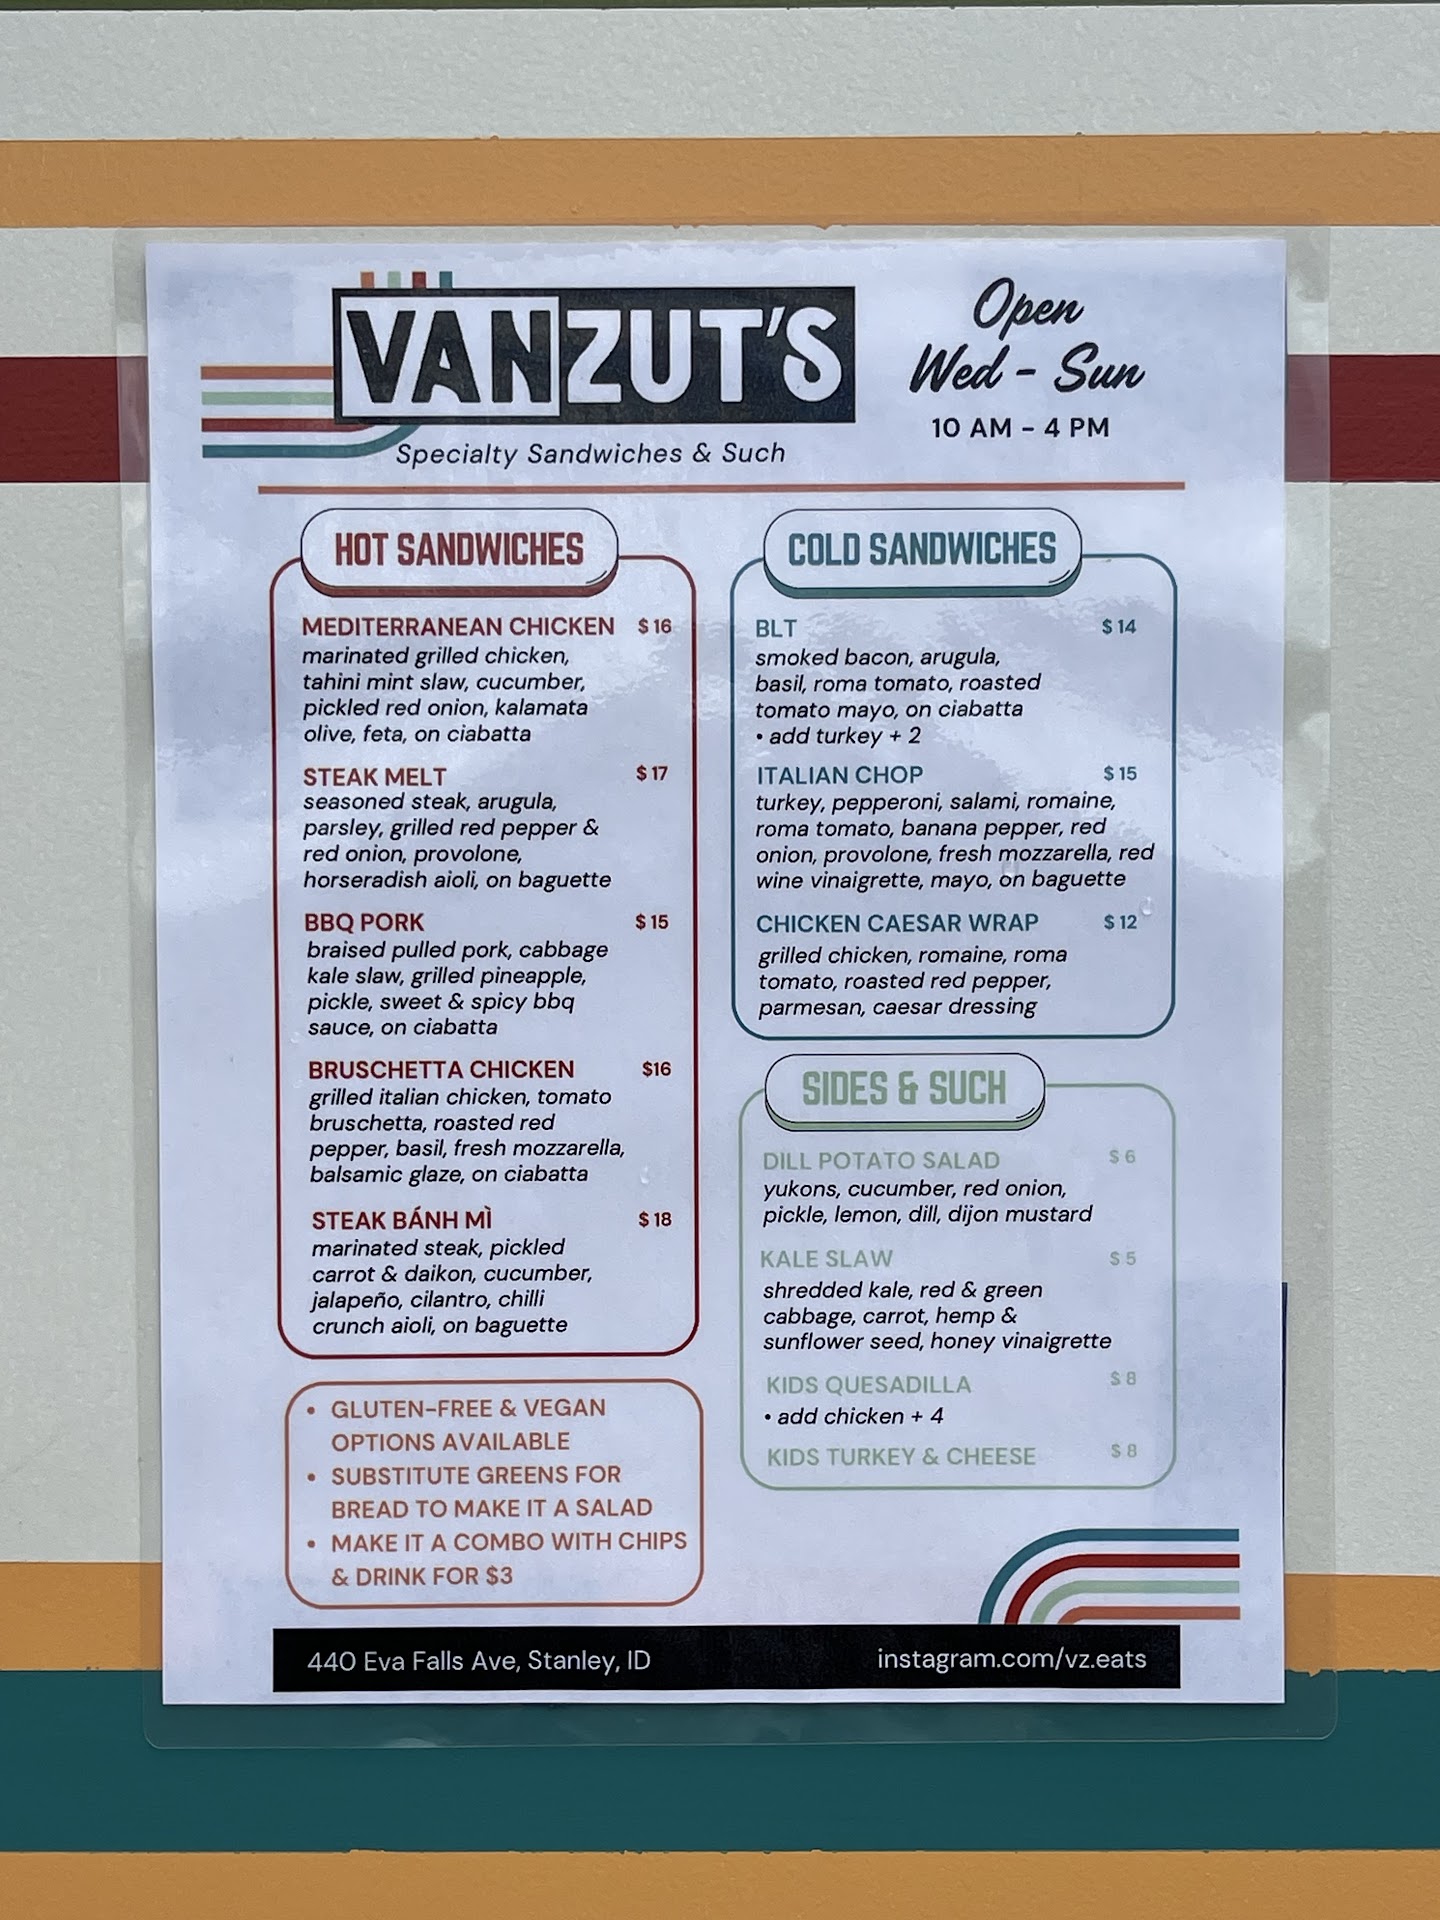 VANZUT'S
Specialty Sandwiches & Such
Open
Wed - Sun
10 AM - 4 PM
HOT SANDWICHES
MEDITERRANEAN CHICKEN $16
marinated grilled chicken,
tahini mint slaw, cucumber,
pickled red onion, kalamata
olive, feta, on ciabatta
STEAK MELT $17
seasoned steak, arugula,
parsley, grilled red pepper &
red onion, provolone,
horseradish aioli, on baguette
BBQ PORK $15
braised pulled pork, cabbage
kale slaw, grilled pineapple,
pickle, sweet & spicy bbq
sauce, on ciabatta
BRUSCHETTA CHICKEN $16
grilled italian chicken, tomato
bruschetta, roasted red
pepper, basil, fresh mozzarella,
balsamic glaze, on ciabatta
STEAK BÁNH MÌ $18
marinated steak, pickled
carrot & daikon, cucumber,
jalapeño, cilantro, chilli
crunch aioli, on baguette
• GLUTEN-FREE & VEGAN
OPTIONS AVAILABLE
• SUBSTITUTE GREENS FOR
BREAD TO MAKE IT A SALAD
• MAKE IT A COMBO WITH CHIPS
& DRINK FOR $3
COLD SANDWICHES
BLT $14
smoked bacon, arugula,
basil, roma tomato, roasted
tomato mayo, on ciabatta
• add turkey + 2
ITALIAN CHOP $15
turkey, pepperoni, salami, romaine,
roma tomato, banana pepper, red
onion, provolone, fresh mozzarella, red
wine vinaigrette, mayo, on baguette
CHICKEN CAESAR WRAP $12
grilled chicken, romaine, roma
tomato, roasted red pepper,
parmesan, caesar dressing
SIDES & SUCH
DILL POTATO SALAD $6
yukons, cucumber, red onion,
pickle, lemon, dill, dijon mustard
KALE SLAW $5
shredded kale, red & green
cabbage, carrot, hemp &
sunflower seed, honey vinaigrette
KIDS QUESADILLA $8
• add chicken + 4
KIDS TURKEY & CHEESE $8
440 Eva Falls Ave, Stanley, ID
instagram.com/vz.eats